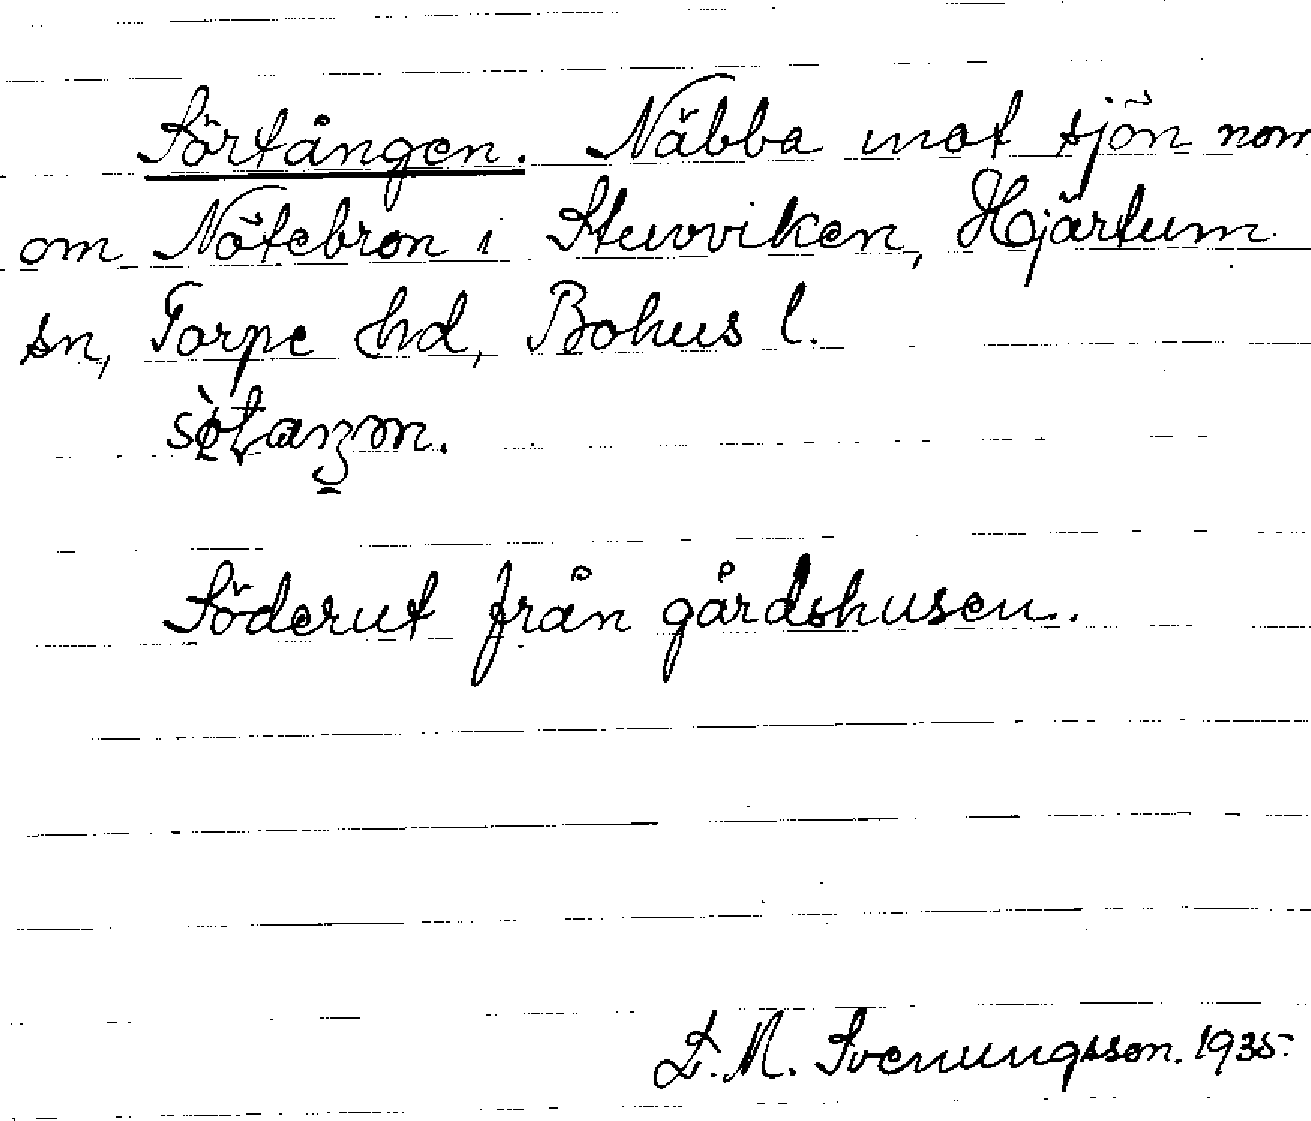 Sörtången. Näbba mot sjön norr
om Nötebron i Stuvviken, Hjärtum
sn, Torpe hd, Bohus l.
Söderut från gårdshusen.
D. M. Svenungsson. 1935.